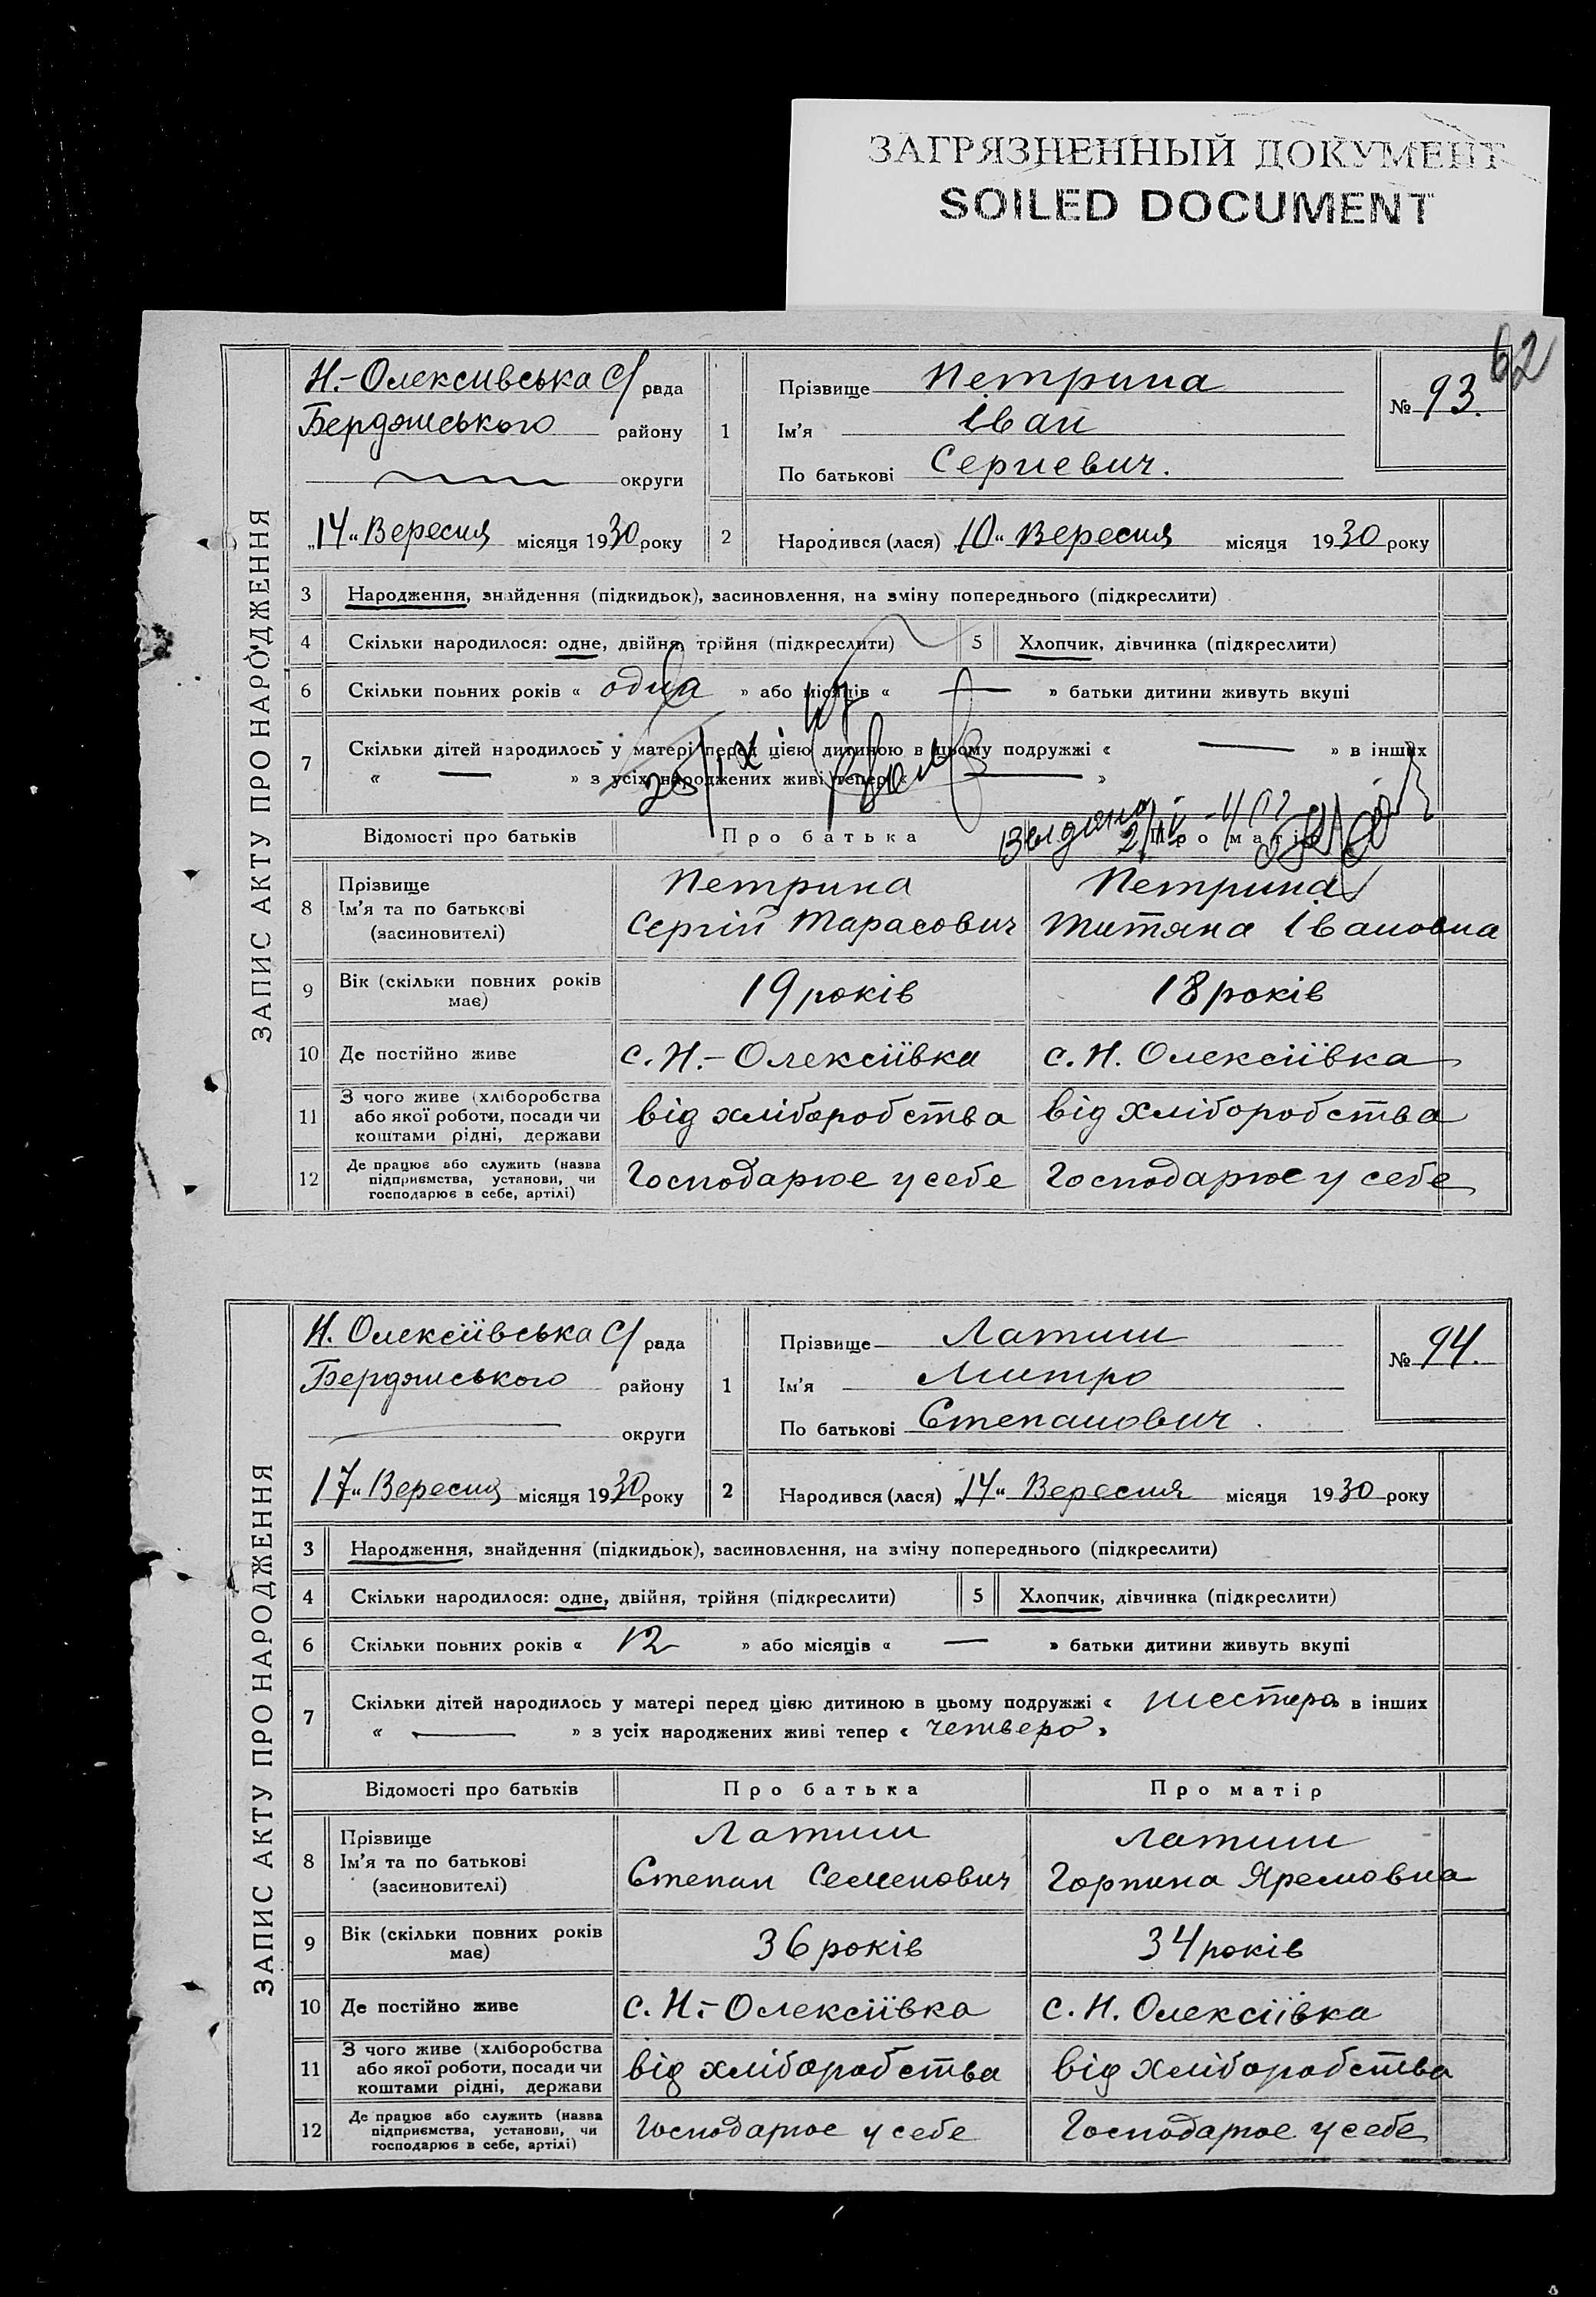 ЗАГРЯЗНЕННЫЙ ДОКУМЕНТ
SOILED DOCUMENT
62
ЗАПИС АКТУ ПРО НАРОДЖЕННЯ
Н.-Олексиівська С/ рада
Бердянського району
округи
„14" Вересня місяця 1930 року
1 Прізвище Петрина
Ім'я Іван
По батькові Сергиевич.
№ 93.
2 Народився (лася) „10" Вересня місяця 1930 року
3 Народження, знайдення (підкидьок), засиновлення, на зміну попереднього (підкреслити)
4 Скільки народилося: одне, двійня, трійня (підкреслити) 5 Хлопчик, дівчинка (підкреслити)
6 Скільки повних років « одна » або місяців « — » батьки дитини живуть вкупі
7 Скільки дітей народилось у матері перед цією дитиною в цьому подружжі « — » в інших
« — » з усіх народжених живі тепер « — »
Відомості про батьків Про батька Про матір
8 Прізвище
Ім'я та по батькові
(засиновителі)
Петрина
Сергій Тарасович
Петрина
Титяна Івановна
9 Вік (скільки повних років
має)
19 років 18 років
10 Де постійно живе с. Н.-Олексіївка с. Н. Олексіївка
11 З чого живе (хліборобства
або якої роботи, посади чи
коштами рідні, держави
від хліборобства від хліборобства
12 Де працює або служить (назва
підприємства, установи, чи
господарює в себе, артілі)
Господарює у себе Господарює у себе
ЗАПИС АКТУ ПРО НАРОДЖЕННЯ
Н. Олексіївська С/ рада
Бердянського району
округи
„17" Вересня місяця 1930 року
1 Прізвище Латиш
Ім'я Митро
По батькові Степанович
№ 94.
2 Народився (лася) „14" Вересня місяця 1930 року
3 Народження, знайдення (підкидьок), засиновлення, на зміну попереднього (підкреслити)
4 Скільки народилося: одне, двійня, трійня (підкреслити) 5 Хлопчик, дівчинка (підкреслити)
6 Скільки повних років « 12 » або місяців « — » батьки дитини живуть вкупі
7 Скільки дітей народилось у матері перед цією дитиною в цьому подружжі « шестеро » в інших
« — » з усіх народжених живі тепер « четверо »
Відомості про батьків Про батька Про матір
8 Прізвище
Ім'я та по батькові
(засиновителі)
Латиш
Степан Семенович
Латиш
Горпина Яремовна
9 Вік (скільки повних років
має)
36 років 34 років
10 Де постійно живе с. Н.-Олексіївка с. Н. Олексіївка
11 З чого живе (хліборобства
або якої роботи, посади чи
коштами рідні, держави
від хліборобства від хліборобства
12 Де працює або служить (назва
підприємства, установи, чи
господарює в себе, артілі)
Господарює у себе Господарює у себе